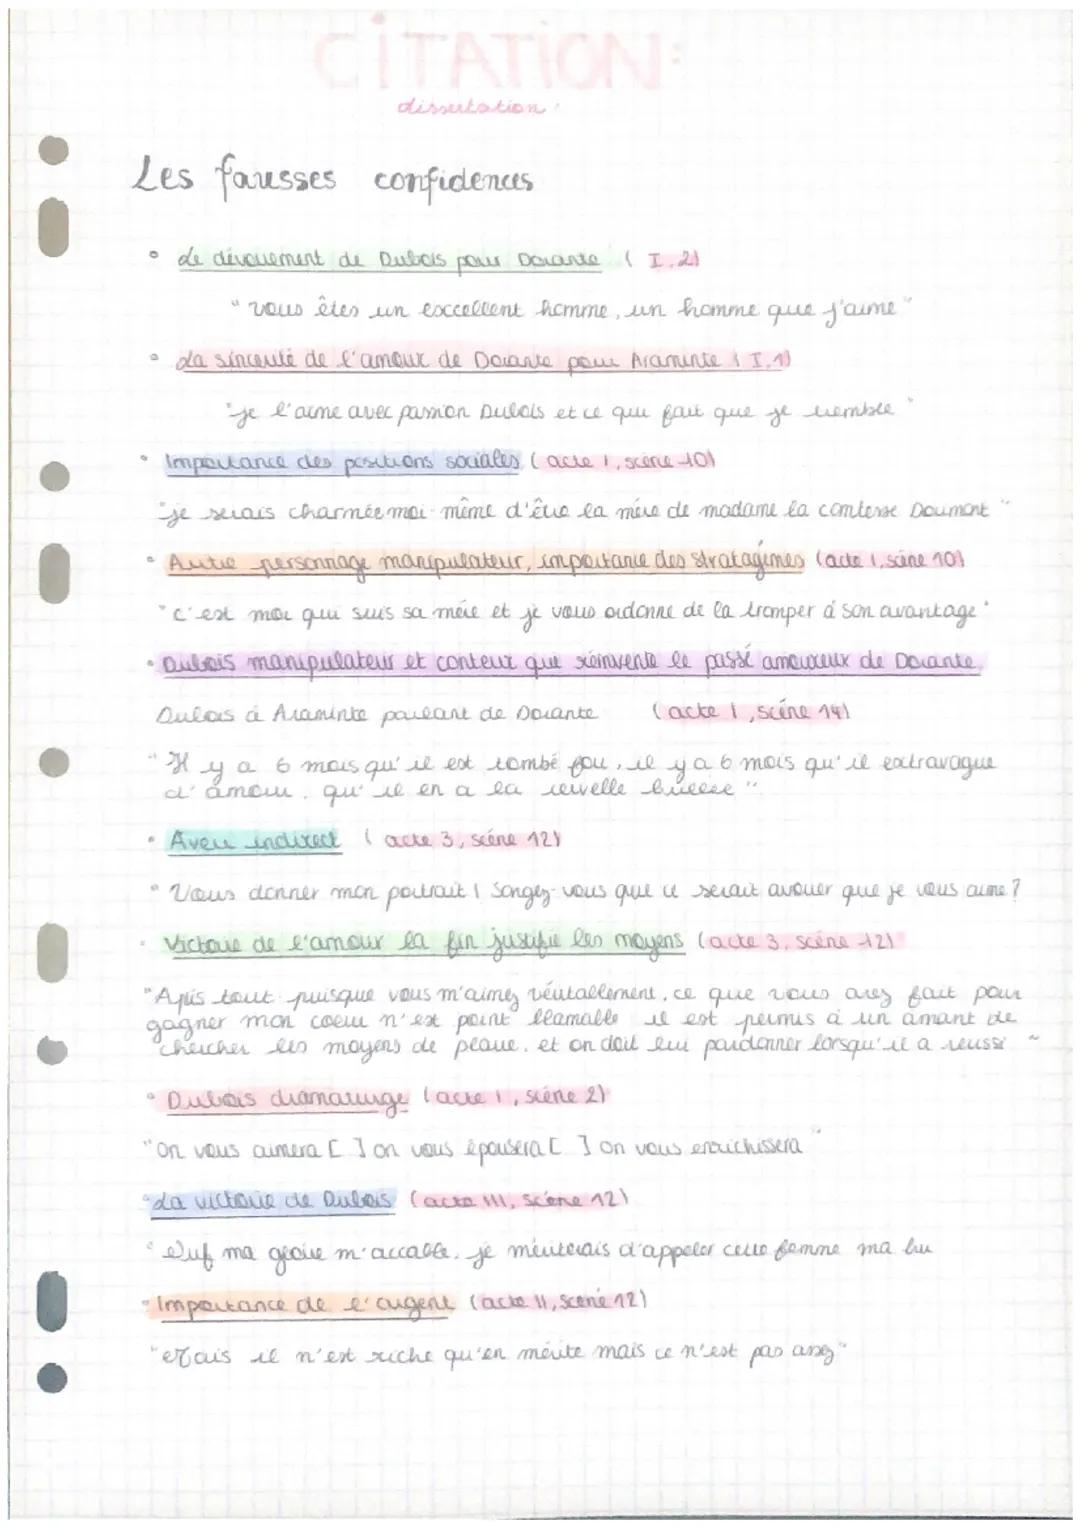 CITATION:
dissertation:
Les fausses confidences
° Le dévouement de Dubois pour Dorante ( I.2)
"vous êtes un excellent homme, un homme que j'aime"
° La sincérité de l'amour de Dorante pour Araminte ( I.1)
"je l'aime avec passion Dubois et ce qui fait que je tremble"
° Importance des positions sociales (acte 1, scène 10)
"je serais charmée moi-même d'être la mère de madame la comtesse Dorimont"
° Autre personnage manipulateur, importance des stratagèmes (acte 1, scène 10)
"c'est moi qui suis sa mère et je vous ordonne de la tromper à son avantage"
• Dubois manipulateur et conteur qui réinvente le passé amoureux de Dorante.
Dubois à Araminte parlant de Dorante (acte 1, scène 14)
"Il y a 6 mois qu'il est tombé fou, il y a 6 mois qu'il extravague
d'amour, qu'il en a la cervelle brûlée".
• Aveu indirect (acte 3, scène 12)
"Vous donner mon portrait ! Songez-vous que ce serait avouer que je vous aime ?
• Victoire de l'amour la fin justifie les moyens (acte 3, scène 12)
"Après tout puisque vous m'aimez véritablement, ce que vous avez fait pour
gagner mon coeur n'est point blamable il est permis à un amant de
chercher les moyens de plaire, et on doit lui pardonner lorsqu'il a réussi"
° Dubois dramaturge (acte 1, scène 2)
"On vous aimera [ ] on vous épousera [ ] on vous enrichissera"
° La victoire de Dubois (acte III, scène 12)
"Ouf ma gloire m'accable, je mériterais d'appeler cette femme ma bru
• Importance de l'argent (acte II, scène 12)
"Mais il n'est riche qu'en mérite mais ce n'est pas assez"